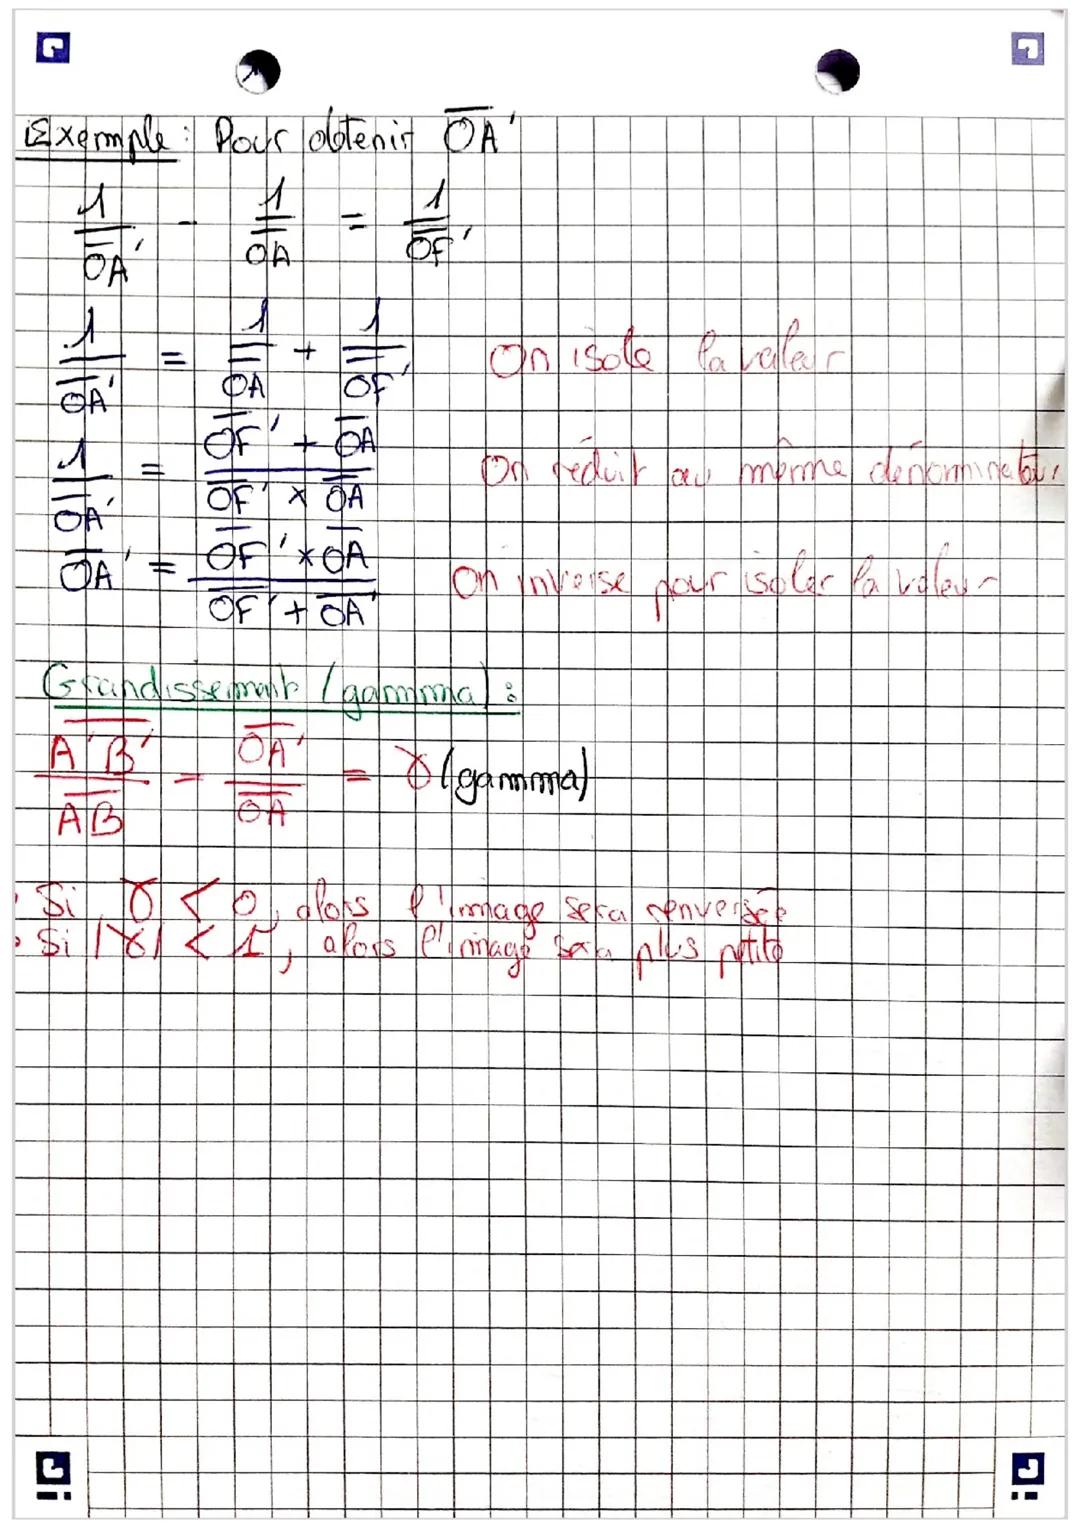 Exemple : Pour obtenir O̅A̅'
1/O̅A̅' - 1/O̅A̅ = 1/O̅F̅'
1/O̅A̅' = 1/O̅A̅ + 1/O̅F̅' On isole la valeur
1/O̅A̅' = (O̅F̅' + O̅A̅)/(O̅F̅' × O̅A̅) On réduit au même dénominateur
O̅A̅' = (O̅F̅' × O̅A̅)/(O̅F̅' + O̅A̅) On inverse pour isoler la valeur
Grandissement (gamma) :
A̅'B̅'/A̅B̅ = O̅A̅'/O̅A̅ = γ (gamma)
• Si γ < 0, alors l'image sera renversée
• Si |γ| < 1, alors l'image sera plus petite